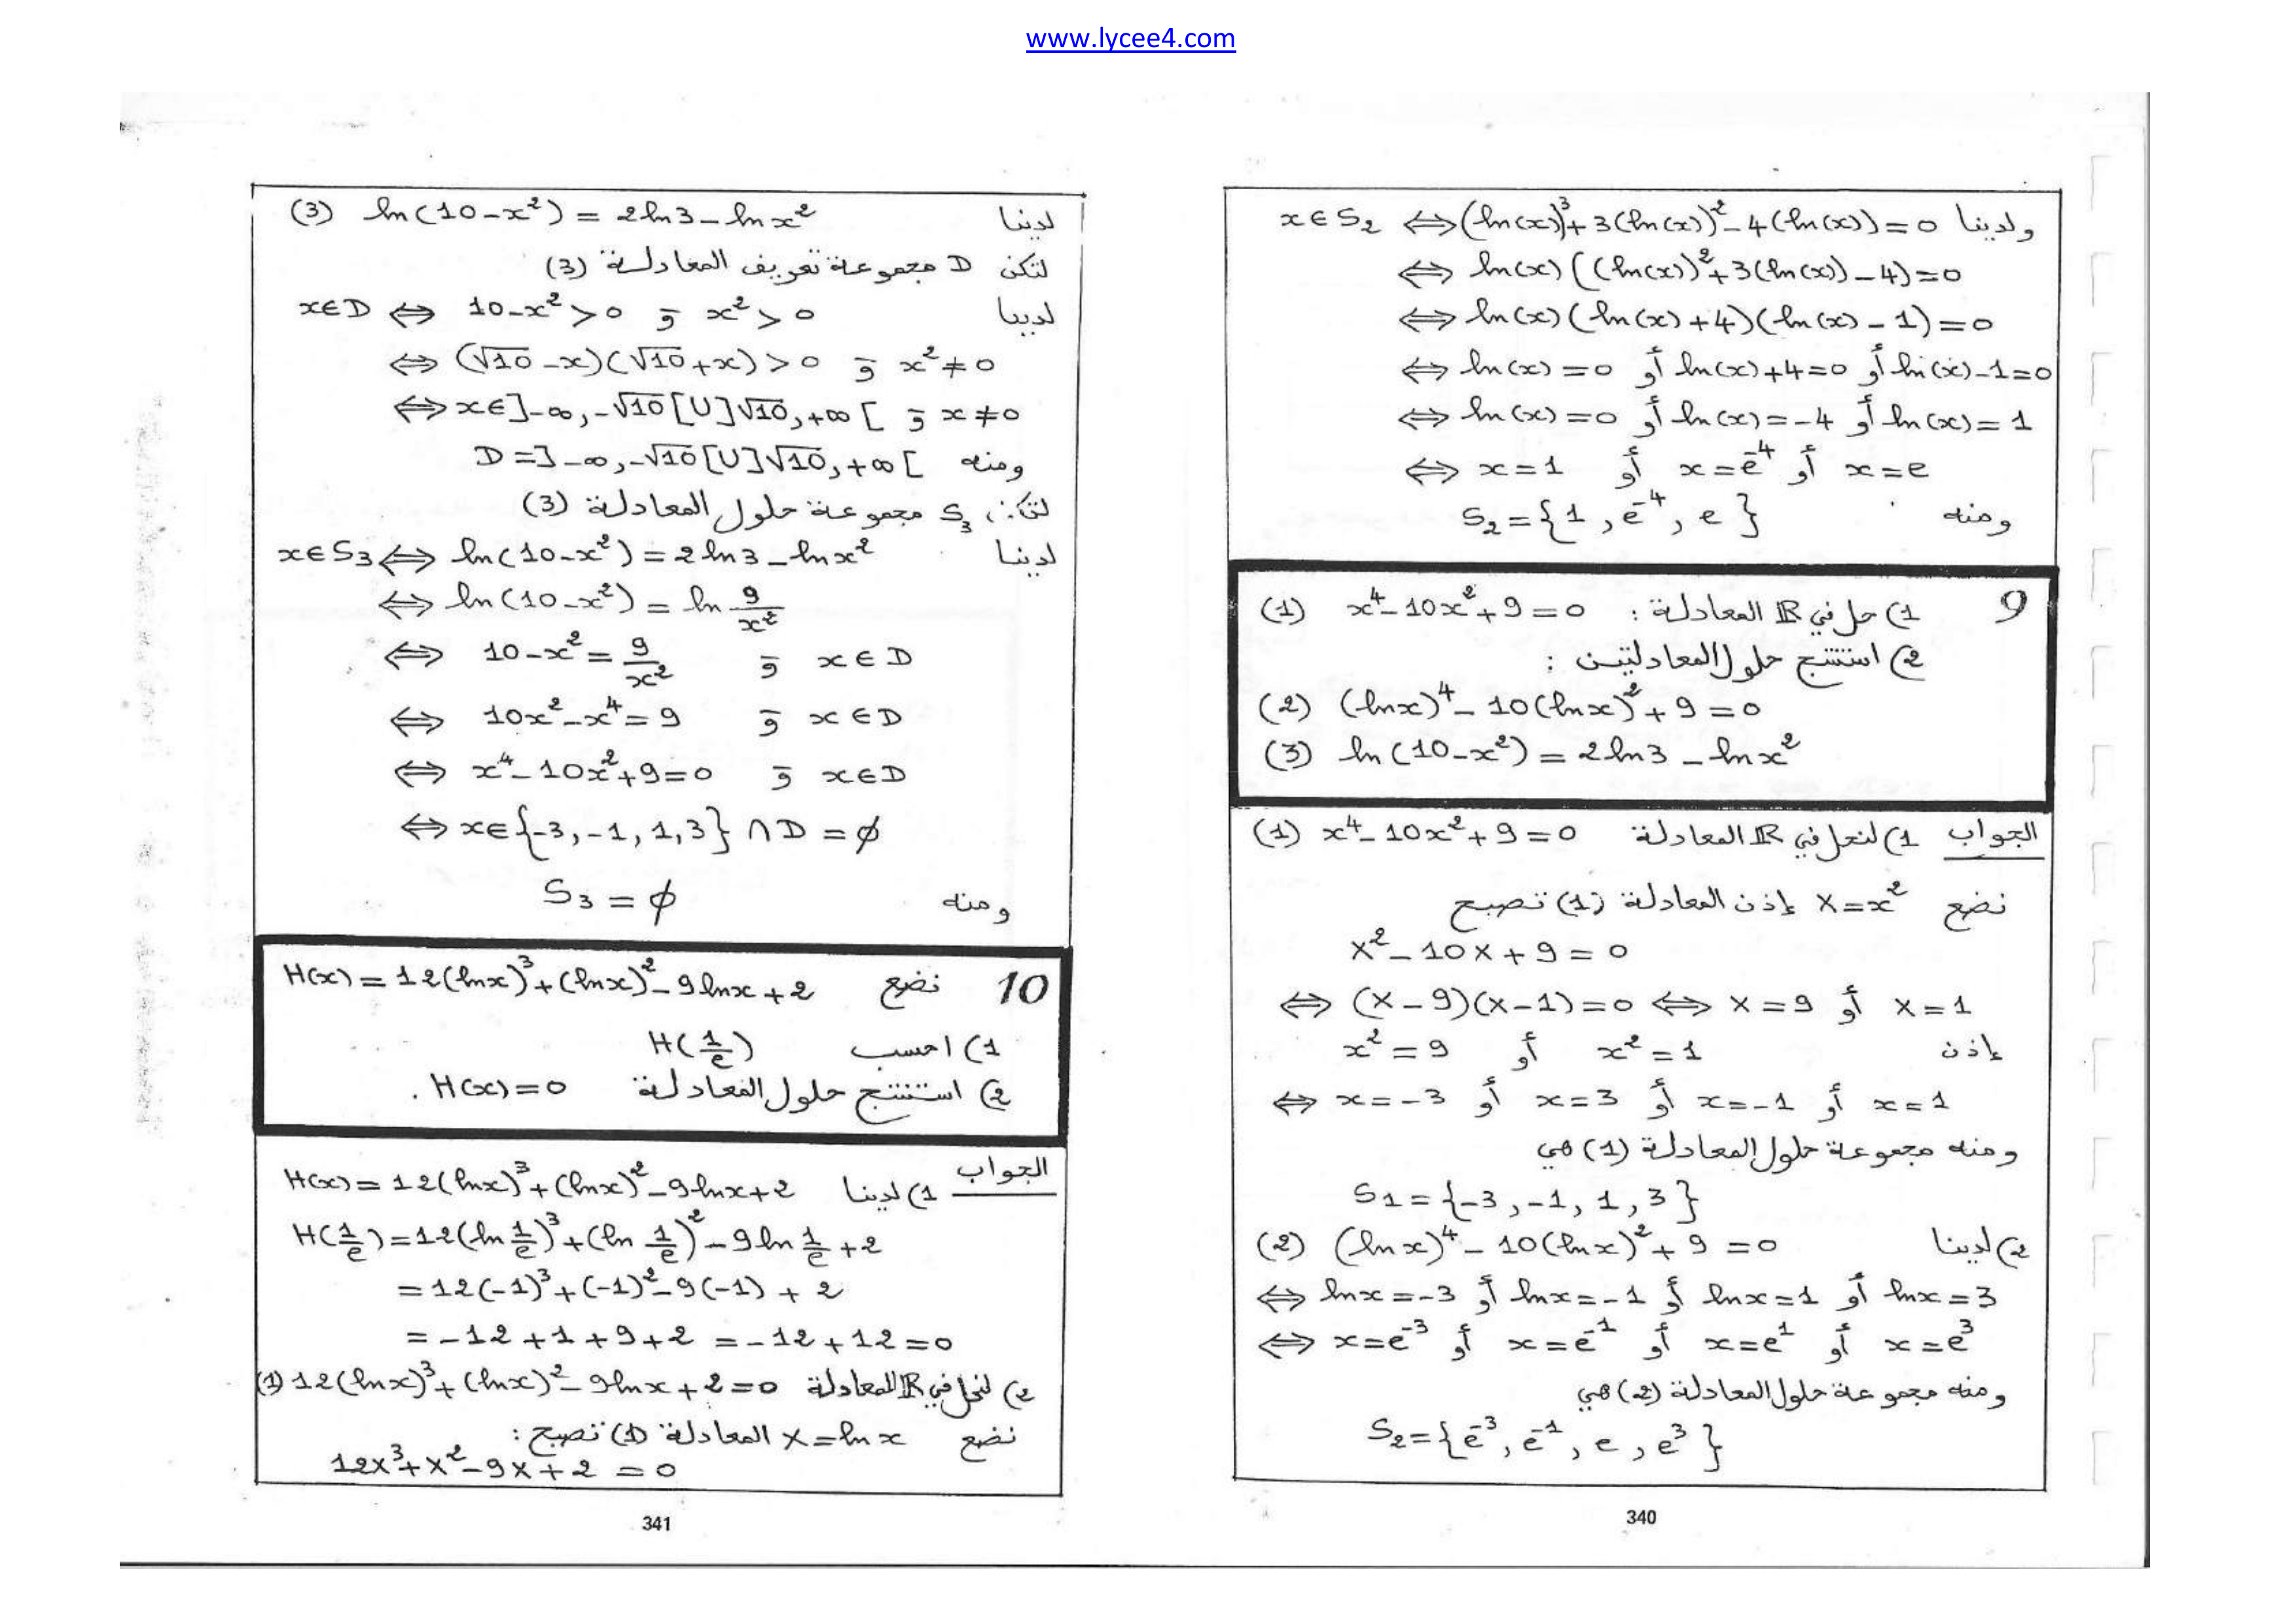 www.lycee4.com
ولدينا x∈S₂ ⟺ (ln(x))³+3(ln(x))²-4(ln(x))=0
⟺ ln(x)((ln(x))²+3(ln(x))-4)=0
⟺ ln(x)(ln(x)+4)(ln(x)-1)=0
⟺ ln(x)=0 أو ln(x)+4=0 أو ln(x)-1=0
⟺ ln(x)=0 أو ln(x)=-4 أو ln(x)=1
⟺ x=1 أو x=e⁻⁴ أو x=e
ومنه S₂={1, e⁻⁴, e}
9 1) حل في ℝ المعادلة : x⁴-10x²+9=0 (1)
2) استنتج حلول المعادلتين :
(2) (lnx)⁴-10(lnx)²+9=0
(3) ln(10-x²)=2ln3-lnx²
الجواب 1) لنحل في ℝ المعادلة x⁴-10x²+9=0 (1)
نضع X=x² إذن المعادلة (1) تصبح
X²-10X+9=0
⟺ (X-9)(X-1)=0 ⟺ X=9 أو X=1
إذن x²=9 أو x²=1
⟺ x=-3 أو x=3 أو x=-1 أو x=1
ومنه مجموعة حلول المعادلة (1) هي
S₁={-3, -1, 1, 3}
2) لدينا (lnx)⁴-10(lnx)²+9=0 (2)
⟺ lnx=-3 أو lnx=-1 أو lnx=1 أو lnx=3
⟺ x=e⁻³ أو x=e⁻¹ أو x=e¹ أو x=e³
ومنه مجموعة حلول المعادلة (2) هي
S₂={e⁻³, e⁻¹, e, e³}
340
لدينا ln(10-x²)=2ln3-lnx² (3)
لتكن D مجموعة تعريف المعادلة (3)
لدينا x∈D ⟺ 10-x²>0 و x²>0
⟺ (√10-x)(√10+x)>0 و x²≠0
⟺ x∈]-∞,-√10[∪]√10,+∞[ و x≠0
ومنه D=]-∞,-√10[∪]√10,+∞[
لتكن S₃ مجموعة حلول المعادلة (3)
لدينا x∈S₃ ⟺ ln(10-x²)=2ln3-lnx²
⟺ ln(10-x²)=ln 9/x²
⟺ 10-x²=9/x² و x∈D
⟺ 10x²-x⁴=9 و x∈D
⟺ x⁴-10x²+9=0 و x∈D
⟺ x∈{-3, -1, 1, 3}∩D=∅
ومنه S₃=∅
10 نضع H(x)=12(lnx)³+(lnx)²-9lnx+2
1) احسب H(1/e)
2) استنتج حلول المعادلة H(x)=0 .
الجواب 1) لدينا H(x)=12(lnx)³+(lnx)²-9lnx+2
H(1/e)=12(ln 1/e)³+(ln 1/e)²-9ln 1/e+2
=12(-1)³+(-1)²-9(-1)+2
=-12+1+9+2=-12+12=0
2) لنحل في ℝ المعادلة 12(lnx)³+(lnx)²-9lnx+2=0 (1)
نضع X=lnx المعادلة (1) تصبح :
12X³+X²-9X+2=0
341